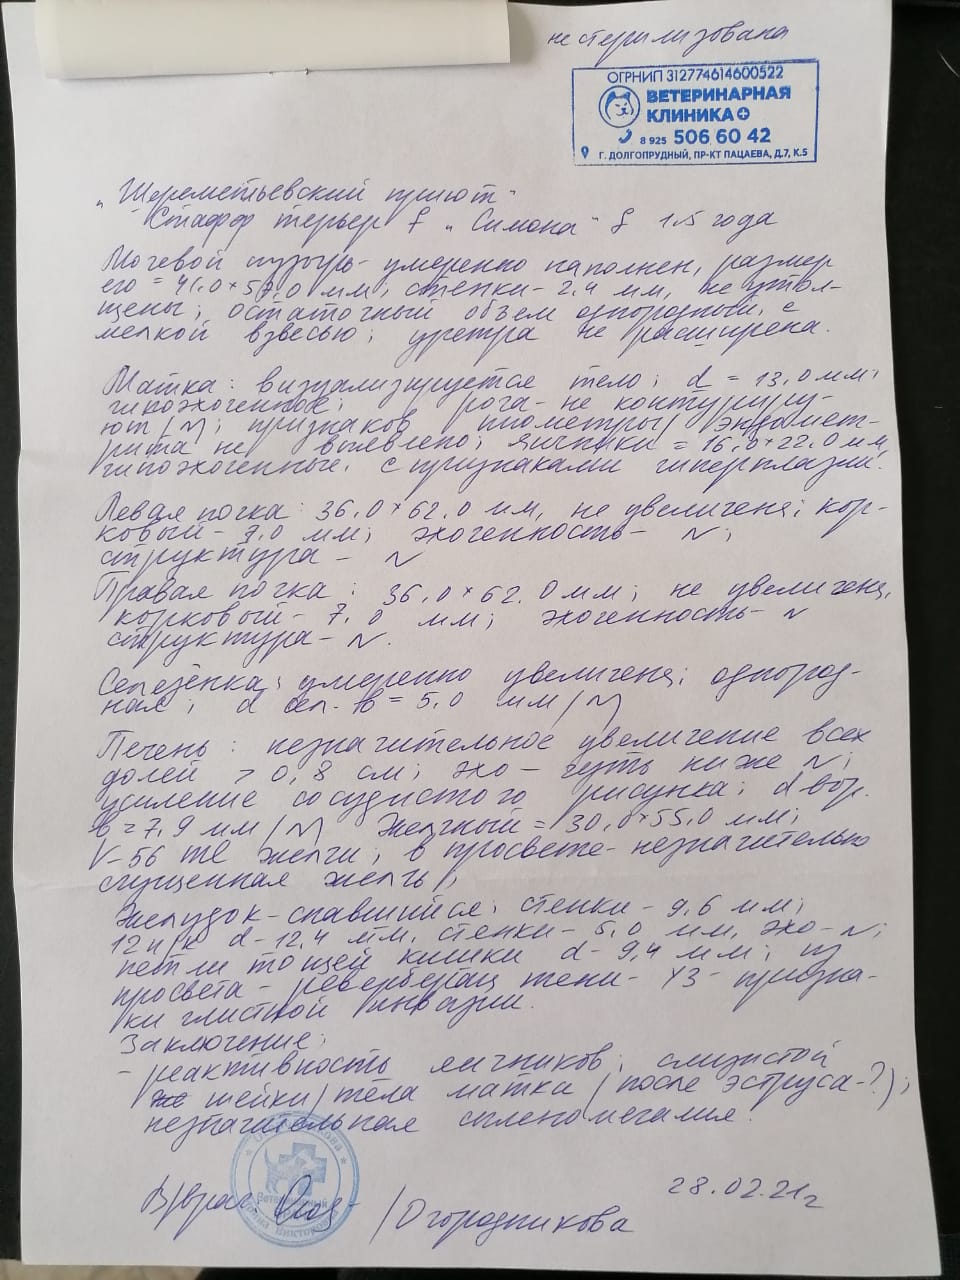 не стерилизована
ОГРНИП 312774614600522
ВЕТЕРИНАРНАЯ
КЛИНИКА
8 925 506 60 42
Г. ДОЛГОПРУДНЫЙ, ПР-КТ ПАЦАЕВА, Д.7, К.5
"Шереметьевский приют"
Стафф терьер f "Симона" f 1.5 года
Мочевой пузырь - умеренно наполнен, размер
его = 41,0 × 57,0 мм; стенки - 2,4 мм, не утол-
щены; остаточный объем однородный, с
мелкой взвесью; уретра не расширена.
Матка: визуализируется тело; d = 13,0 мм;
гипоэхогенное; рога - не контуриру-
ют /N/; признаков пиометры/эндомет-
рита не выявлено; яичники = 16,0 × 22,0 мм
гипоэхогенные, с признаками гиперплазии.
Левая почка: 36,0 × 62,0 мм, не увеличена; кор-
ковый - 7,0 мм; эхогенность - N;
структура - N
Правая почка: 36,0 × 62,0 мм; не увеличена,
корковый - 7,0 мм; эхогенность - N
структура - N.
Селезёнка: умеренно увеличена; однород-
ная; d сел. в = 5,0 мм /N/
Печень: незначительное увеличение всех
долей > 0,8 см; эхо - чуть ниже N;
усиление сосудистого рисунка; d вор.
в = 7,9 мм /N/ Желчный = 30,0 × 55,0 мм;
V - 56 ml желчи; в просвете - незначительно
сгущенная желчь;
Желудок - спавшийся; стенки - 9,6 мм;
12 п/к d - 12,4 мм, стенки - 5,0 мм, эхо - N;
петли тощей кишки d - 9,4 мм; из
просвета - ревербер тени - УЗ - призна-
ки глистной инвазии.
Заключение:
- реактивность яичников, слизистой
шейки/тела матки /после эструса - ?/;
незначительная спленомегалия.
Ветеринарный
Викторовна
В/врач: /Огородникова
28.02.21г